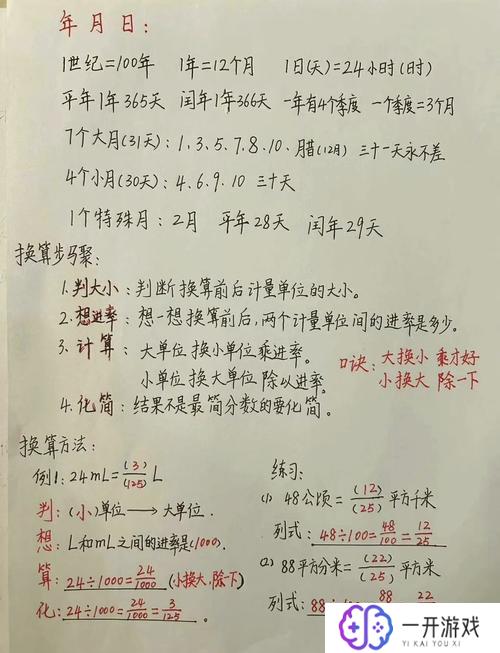 年月日:
1世纪=100年 1年=12个月 1日(天)=24小时(时)
平年1年365天 闰年1年366天 一年有4个季度 一个季度=3个月
7个大月(31天):1、3、5、7、8、10、腊(12月) 三十一天永不差
4个小月(30天):4、6、9、10 三十天
1个特殊月:2月 平年28天 闰年29天
换算步骤:
1.判大小:判断换算前后计量单位的大小。
2.想进率:想一想换算前后,两个计量单位间的进率是多少。
3.计算:大单位换小单位乘进率。
小单位换大单位除以进率。
口诀:大换小乘才好
小换大除一下
4.化简:结果不是最简分数的要化简。
换算方法:
例1:24mL=(3)/(125)L
判:(小)单位→大单位.
想:L和mL之间的进率是(1000).
算:24÷1000=24/1000(小换大,除一下)
化:24÷1000=24/1000=3/125。
练习:
(1) 48公顷=(12)/(25)平方千米
列式:48÷100=48/100=12/25
(2) 88平方分米=(22)/(25)平方米
列式:88 88 22
一开游戏
YI KAI YOU XI